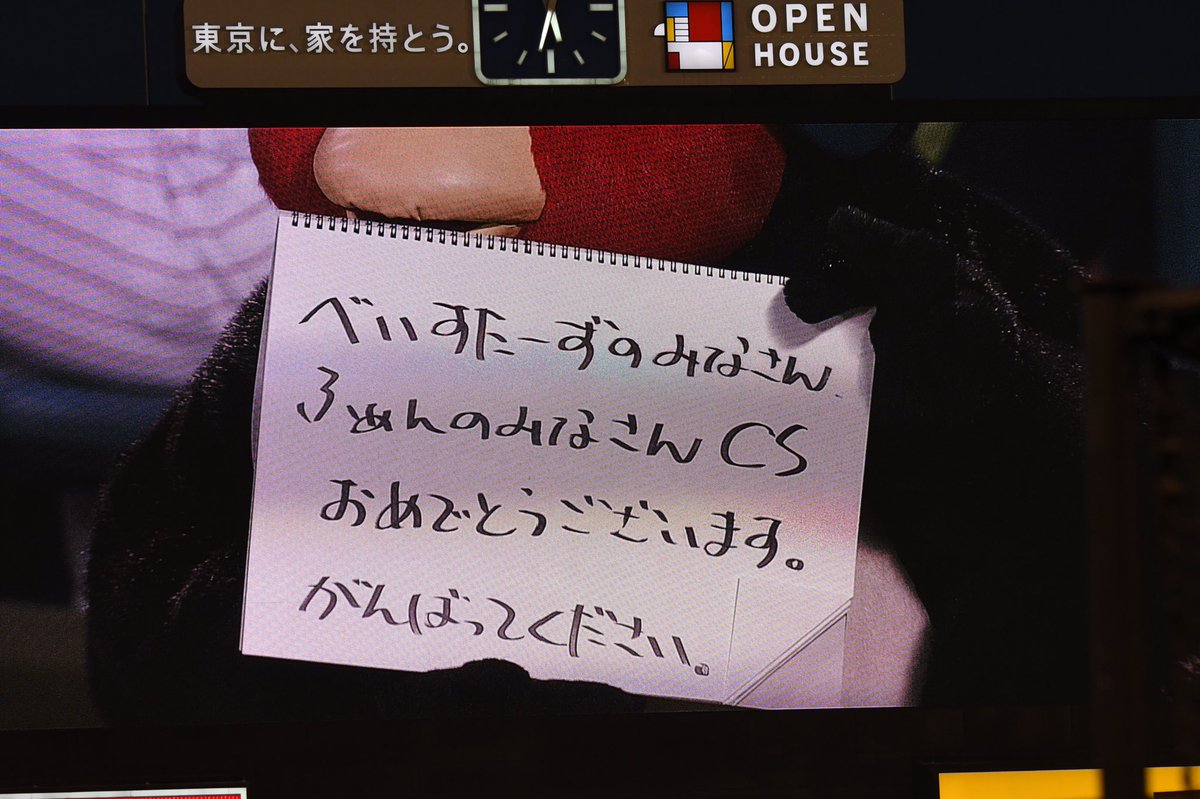 東京に、家を持とう。
OPEN
HOUSE
べいすたーずのみなさん
ふぁんのみなさんCS
おめでとうございます。
がんばってください。